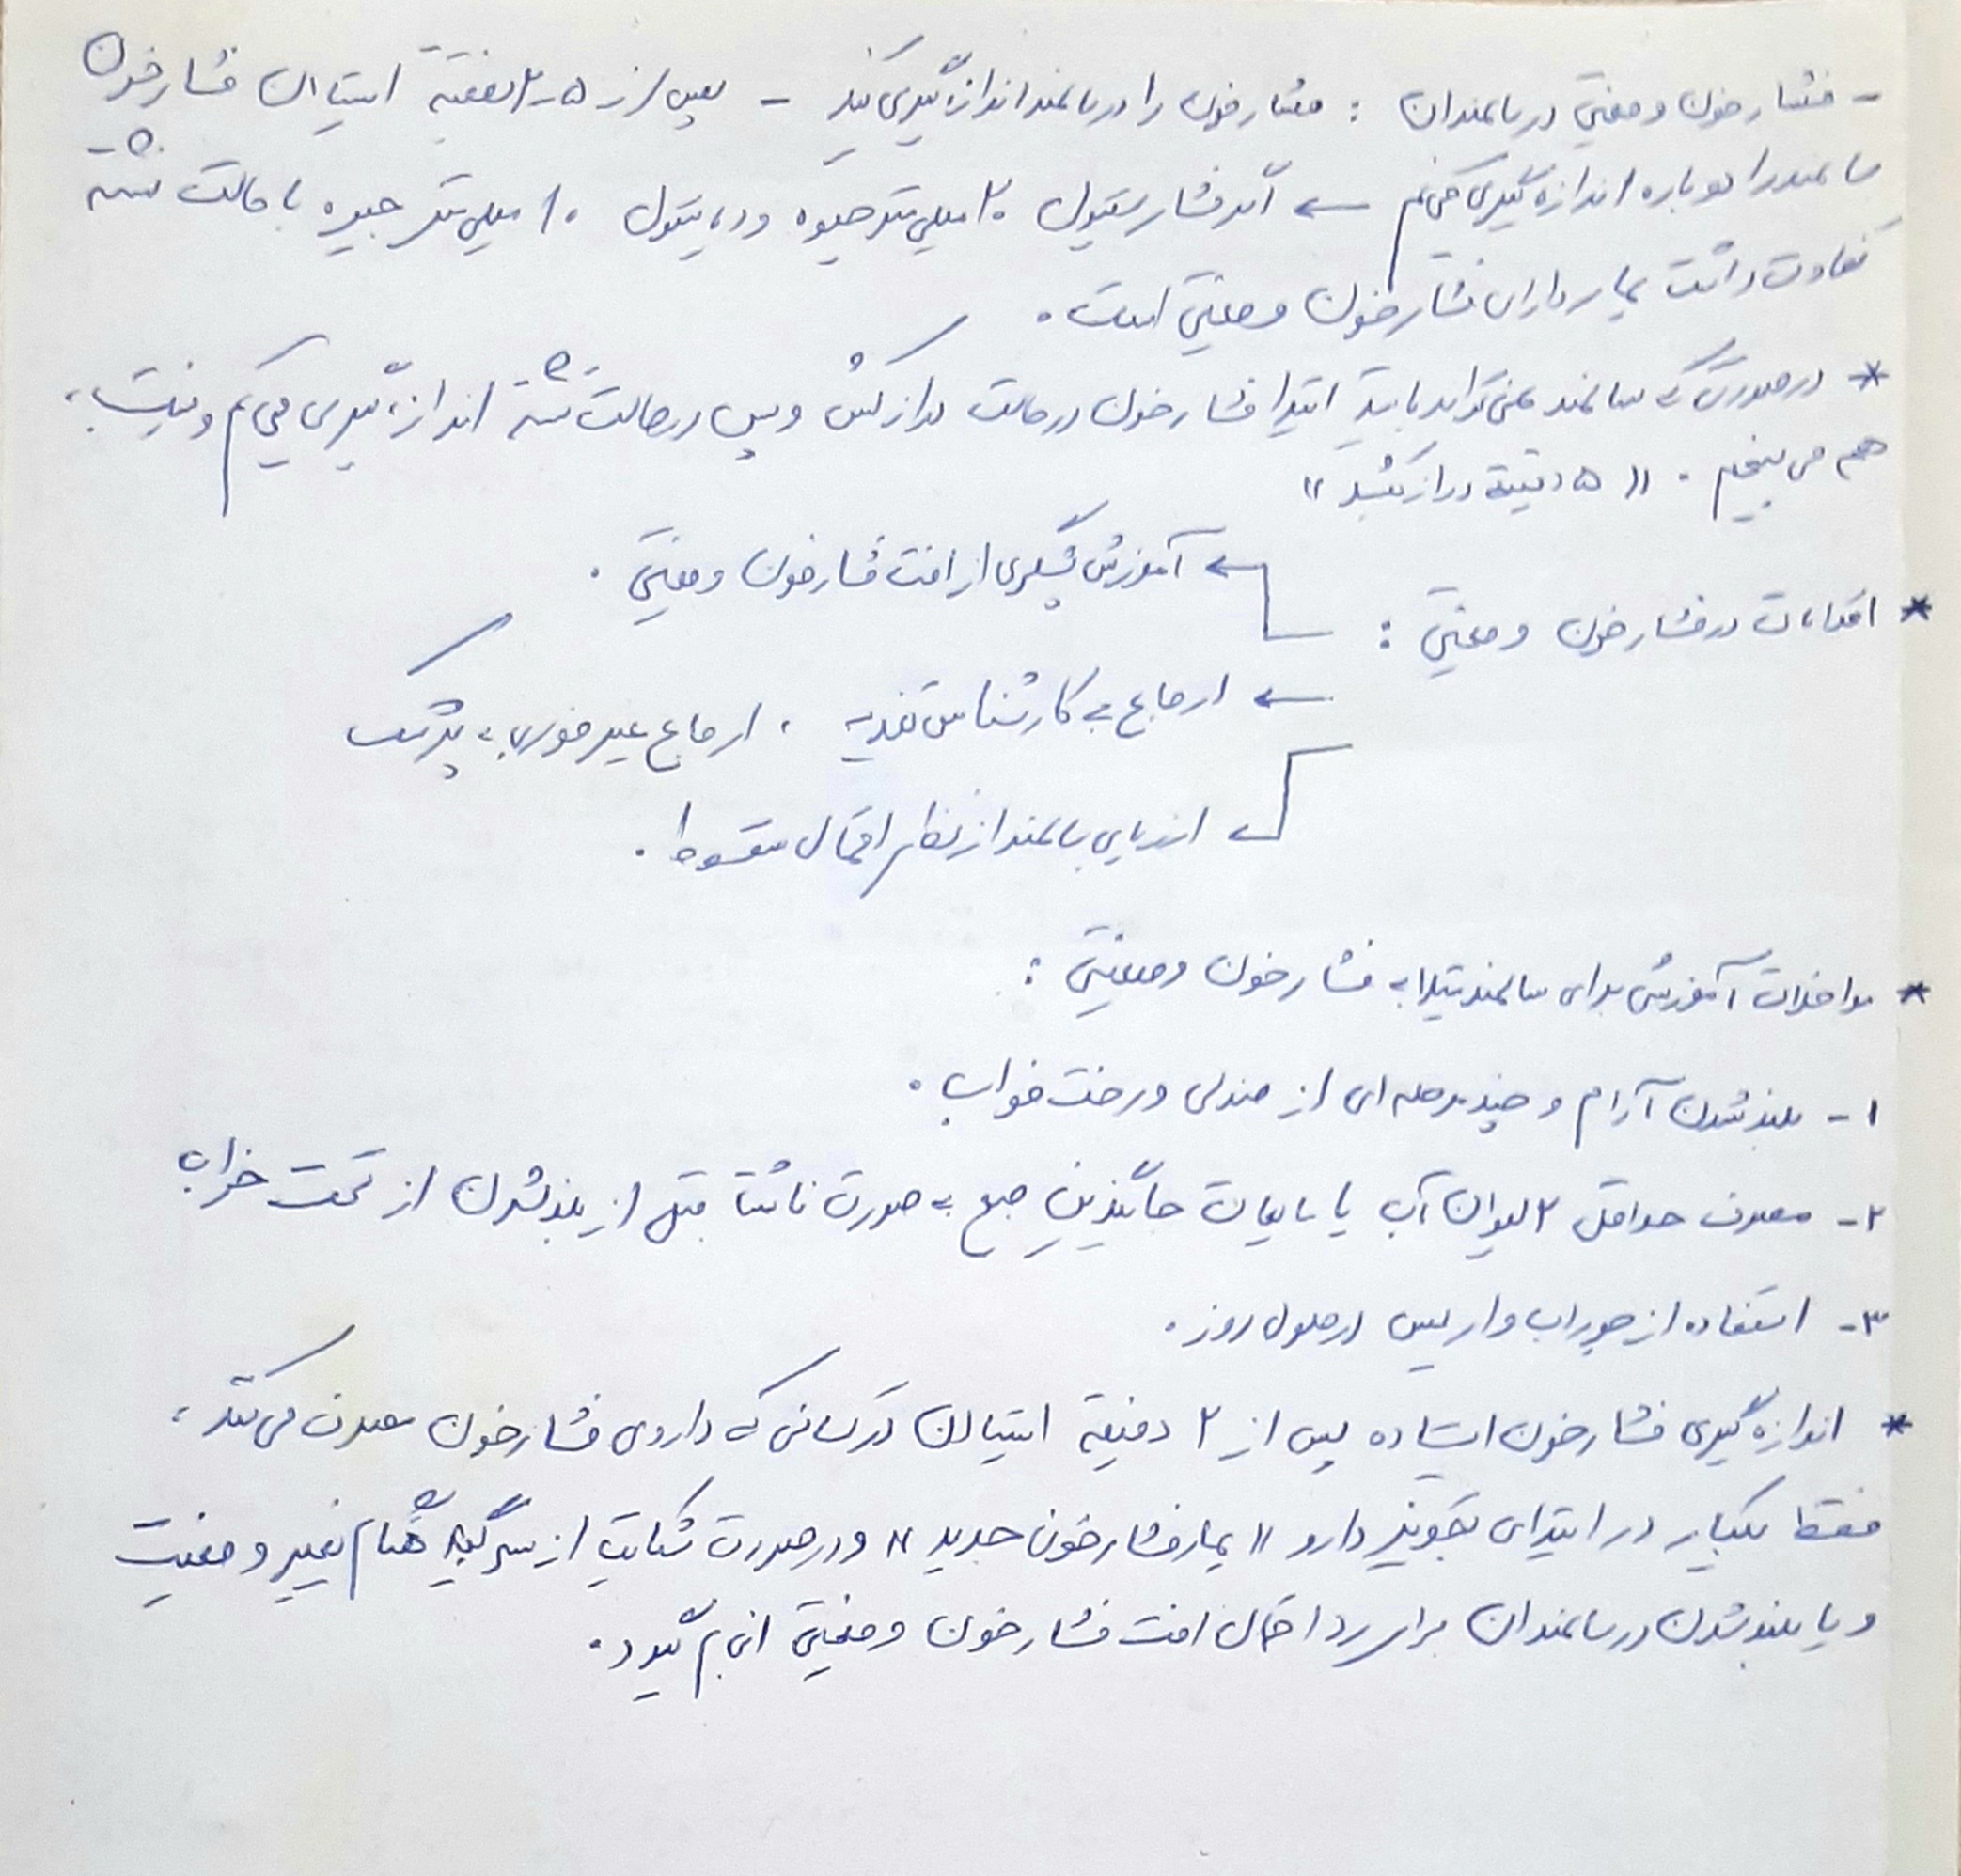 - فشار خون وضعیتی در سالمندان : فشار خون را در سالمند اندازه گیری کنید - پس از ۵-۲ دقیقه ایستادن فشار خون
سالمند را دوباره اندازه گیری می کنیم ← اگر فشار سیستول ۲۰ میلی متر جیوه و دیاستول ۱۰ میلی متر جیوه با حالت نشسته
تفاوت داشت بیمار دارای فشار خون وضعیتی است .
* در صورتی که سالمند نمی تواند بایستد ابتدا فشار خون در حالت دراز کش و سپس در حالت نشسته اندازه گیری می کنیم و نیت
هم می سنجیم . (( ۵ دقیقه دراز بکشد ))
← آموزش پیشگیری از افت فشار خون وضعیتی .
* اقدامات در فشار خون وضعیتی :
← ارجاع به کارشناس تغذیه ، ارجاع غیر فوری به پزشک
← ارزیابی سالمند از نظر احتمال سقوط .
* مداخلات آموزشی برای سالمند مبتلا به فشار خون وضعیتی :
۱- بلند شدن آرام و چند مرحله ای از صندلی و رخت خواب .
۲- مصرف حداقل ۲ لیوان آب یا مایعات جایگزین صبح به صورت ناشتا قبل از بلند شدن از تخت خواب
۳- استفاده از جوراب واریس در طول روز .
* اندازه گیری فشار خون ایستاده پس از ۲ دقیقه ایستادن در کسانی که داروی فشار خون مصرف می کنند ،
فقط یکبار در ابتدای تجویز دارو (( بیمار فشار خون جدید )) و در صورت شکایت از سرگیجه هنگام تغییر وضعیت
و یا بلند شدن در سالمندان برای رد احتمال افت فشار خون وضعیتی انجام گیرد .